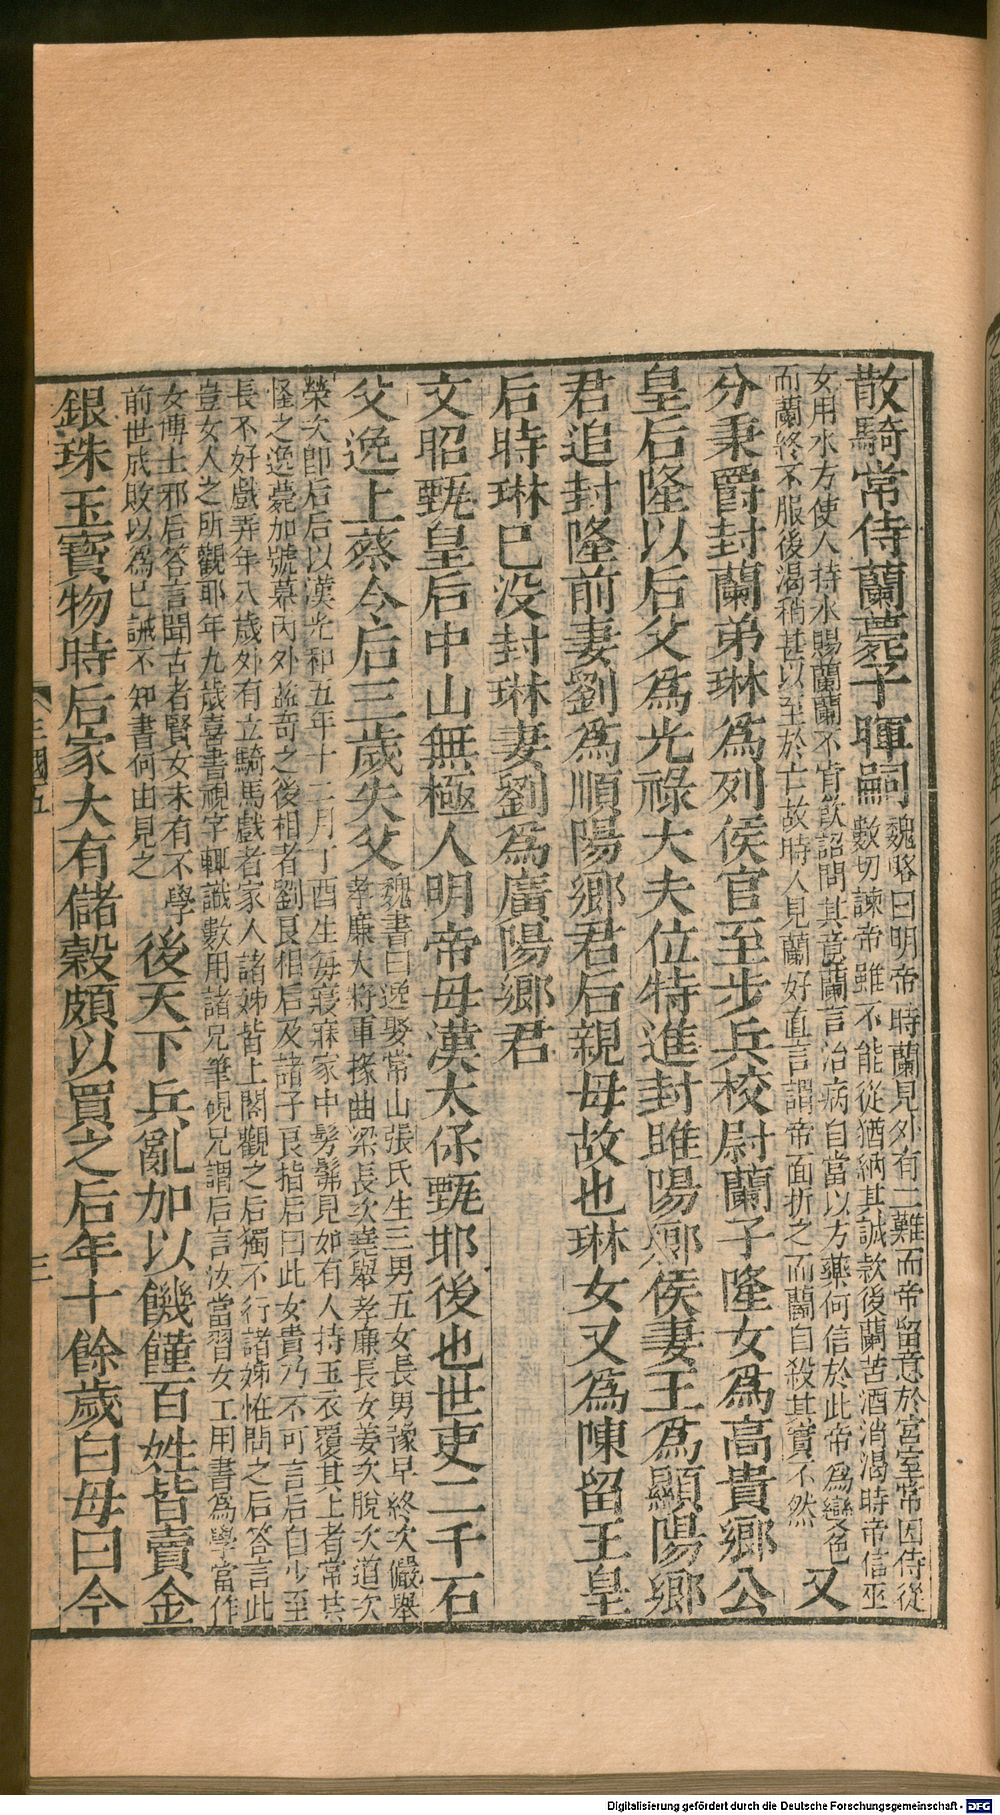 散騎常侍蘭薨子暉嗣魏略曰明帝時蘭見外有二難而帝留意於宮室常因侍從
數切諫帝雖不能從猶納其誠款後蘭苦酒消渴時帝信巫
女用水方使人持水賜蘭蘭不肯飲詔問其意蘭言治病自當以方藥何信於此帝為變色
而蘭終不服後渴稍甚以至於亡故時人見蘭好直言謂帝面折之而蘭自殺其實不然又
分秉爵封蘭弟琳為列侯官至步兵校尉蘭子隆女為高貴鄉公
皇后隆以后父為光祿大夫位特進封睢陽鄉侯妻王為顯陽鄉
君追封隆前妻劉為順陽鄉君后親母故也琳女又為陳留王皇
后時琳已沒封琳妻劉為廣陽鄉君
文昭甄皇后中山無極人明帝母漢太保甄邯後也世吏二千石
父逸上蔡令后三歲失父魏書曰逸娶常山張氏生三男五女長男豫早終次儼舉
孝廉大將軍掾曲梁長次堯舉孝廉長女姜次脫次道次
榮次即后后以漢光和五年十二月丁酉生每寢寐家中髣髴見如有人持玉衣覆其上者常共
怪之逸薨加號慕內外益奇之後相者劉良相后及諸子良指后曰此女貴乃不可言后自少至
長不好戲弄年八歲外有立騎馬戲者家人諸姊皆上閣觀之后獨不行諸姊怪問之后荅言此
豈女人之所觀耶年九歲喜書視字輒識數用諸兄筆硯兄謂后言汝當習女工用書為學當作
女博士邪后荅言聞古者賢女未有不學
前世成敗以為己誡不知書何由見之後天下兵亂加以饑饉百姓皆賣金
銀珠玉寶物時后家大有儲穀頗以買之后年十餘歲白母曰今
三國五
三
Digitalisierung gefördert durch die Deutsche Forschungsgemeinschaft - DFG